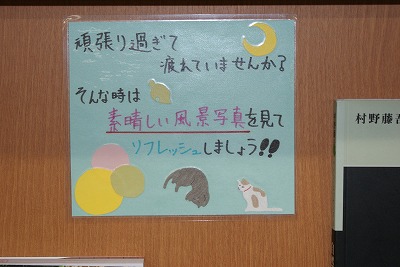 頑張り過ぎて
疲れていませんか?
そんな時は
素晴しい風景写真を見て
リフレッシュしましょう!!
村野藤吾